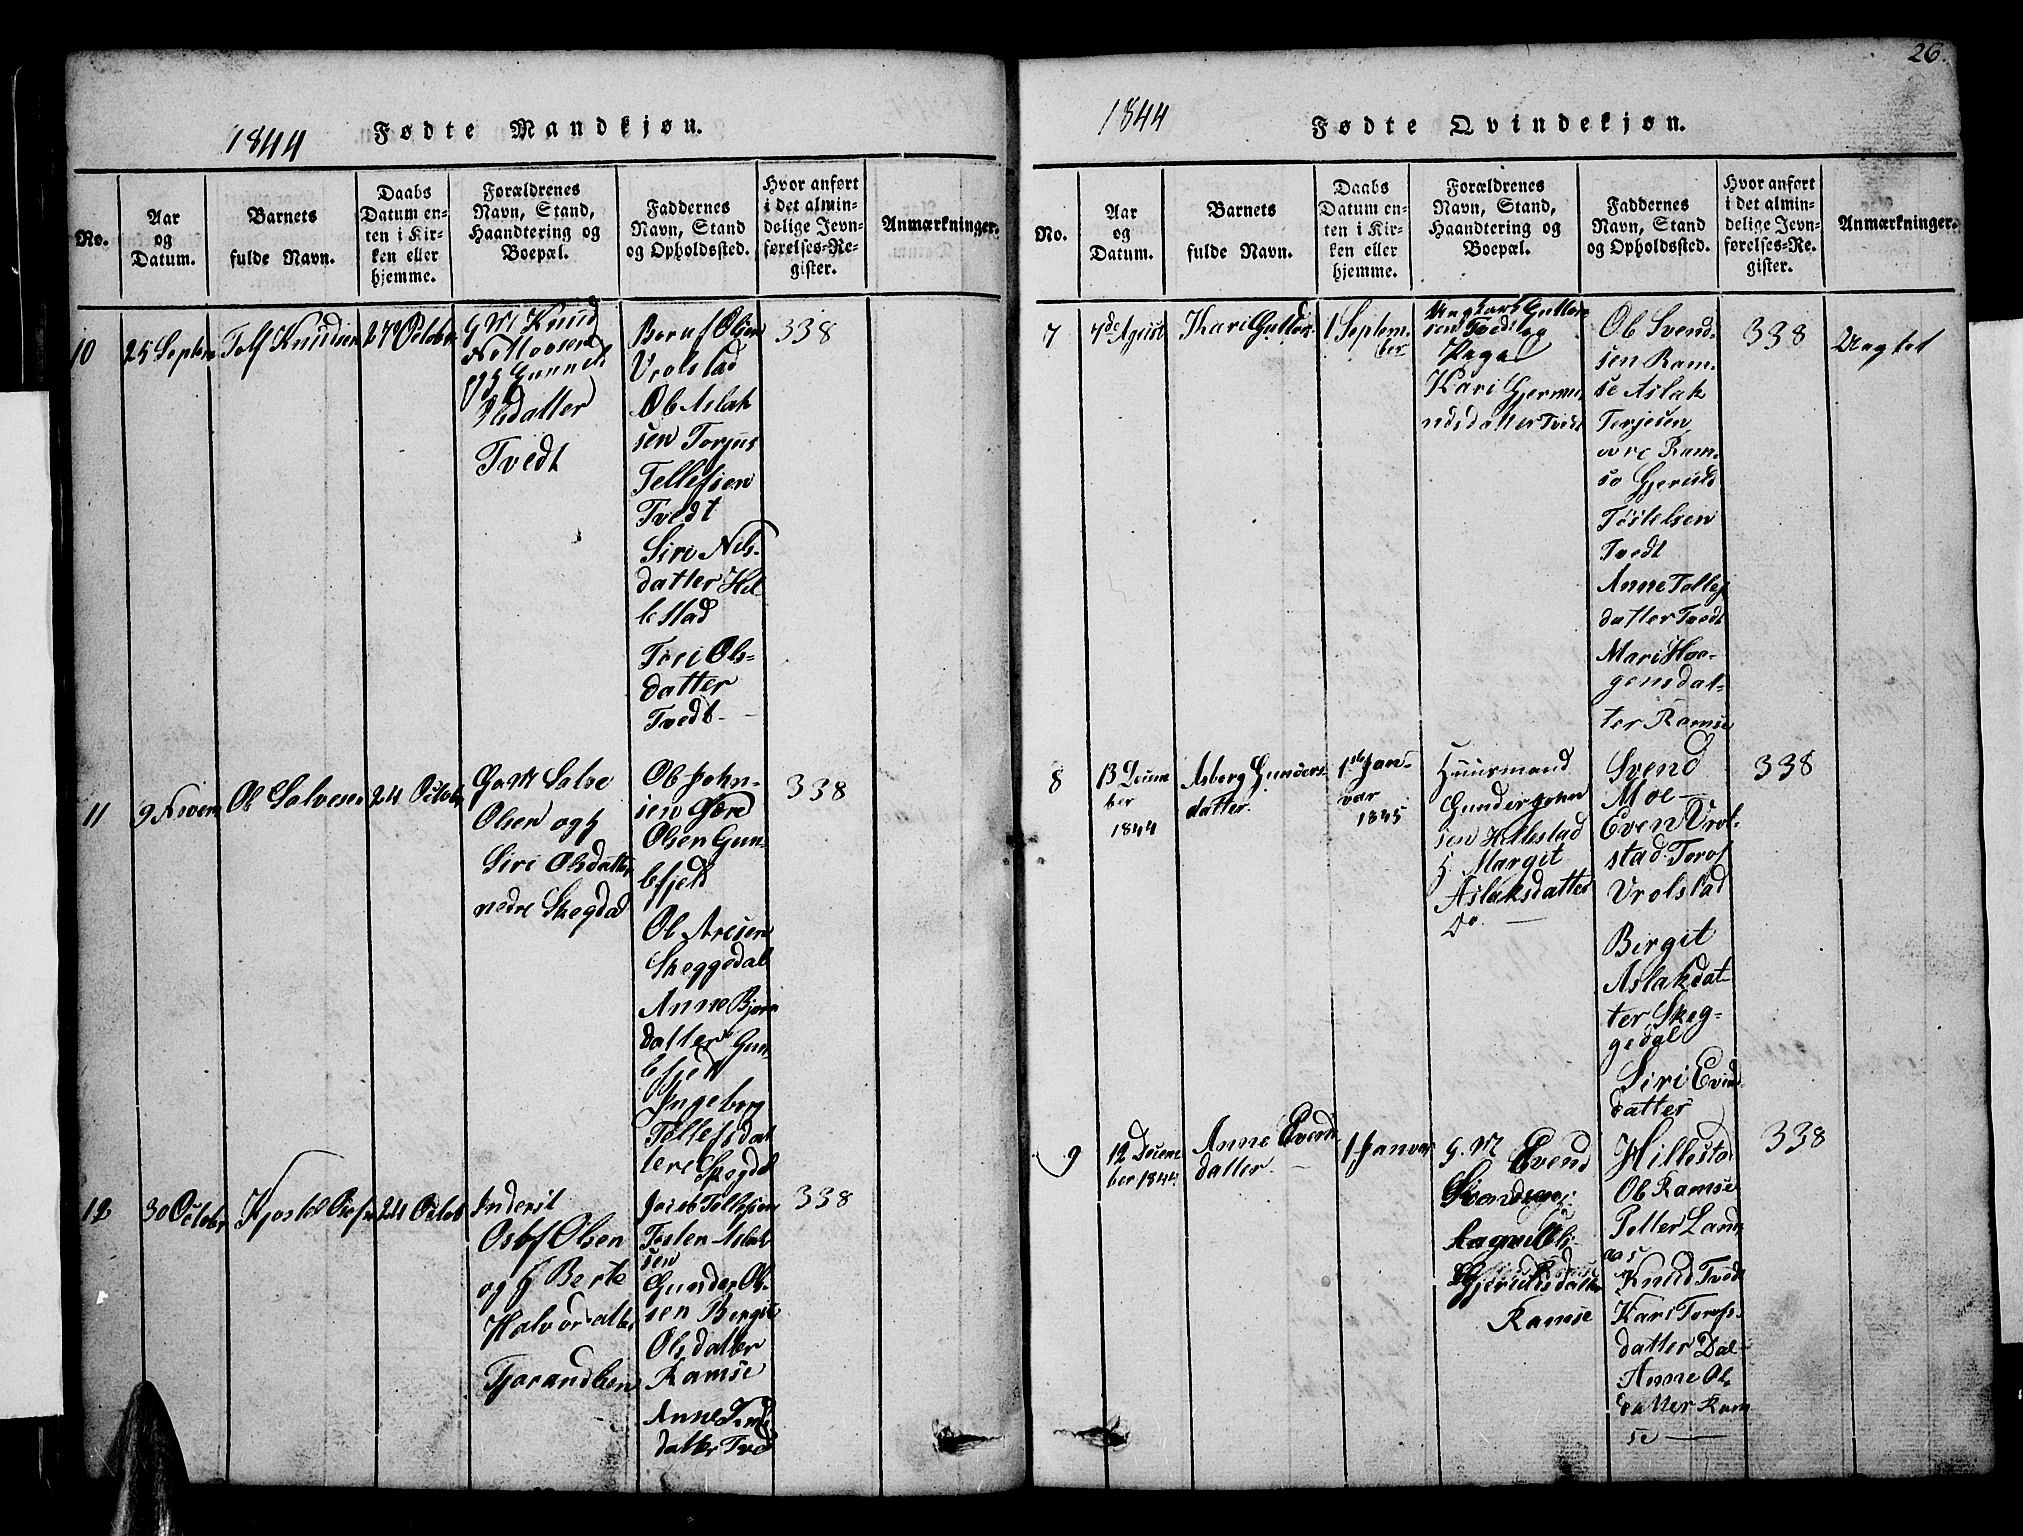 26.
1844
Fødte Mandkjøn.
No.
Aar
og
Datum.
Barnets
fulde Navn.
Daabs
Datum en-
ten i Kir-
ken eller
hjemme.
Forældrenes
Navn, Stand,
Haandtering og
Boepæl.
Faddernes
Navn, Stand
og Opholdssted.
Hvor anført
i det almin-
delige Jevn-
førelses-Re-
gister.
Anmærkninger.
10
25 Septem
Tolf Knudsen
27 Octobr
G M Knud
og h Gunnel
datter
Tvedt
Beruf Olsen
Vrolstad
Ol Aslak
sen Torjus
Tellefsen
Tvedt
Siri Nils-
datter Hil
lestad
Tori Ols-
datter
Tvedt-
338
11
9 Novem
Ol Salvesen
24 Octobr
G M Salve
Olsen og h
Siri Olsdatter
nedre Skegdal
Ol John-
sen Gjere
Olsen Gun-
lefjeld
Ol Aresen
Skeggedal
Anne Bjorn
datter Gun
lefjed
Ingeborg
Tellefsdat
tere Skegdal
338
12
30 Octobr
Kjostel Osefs
24 Octobr
Inderst
Osuf Olsen
og h Berte
Halvordatter
Tjorandlien
Jacob Tellefsen
Tosten Aslak
sen
Gunder Ol-
sen Bergit
Olsdatter
Ramse
Anne
datter Tved
338
1844
Fødte Qvindekjøn.
No.
Aar
og
Datum.
Barnets
fulde Navn.
Daabs
Datum en-
ten i Kir-
ken eller
hjemme.
Forældrenes
Navn, Stand,
Haandtering og
Boepæl.
Faddernes
Navn, Stand
og Opholdssted.
Hvor anført
i det almin-
delige Jevn-
førelses-Re-
gister.
Anmærkninger.
7
7de Agust
Kari Guttors
1 Septem-
ber
Ungkarl Guttorm
sen Tvedt og
Pige
Kari Gjermu
ndsdatter Tvedt
Ol Svend-
sen Ram-
se Aslak
Terjesen
ovre Ram-
se Gjeruld
Tostelsen
Tvedt
Anne Tollef
datter Tvedt
Mari Hoa-
gensdat-
ter Ramse
338
Uegtet
8
13 Decem
ber
1844
Asberg Gunders
datter.
1ste Jan-
var
1845
Huusmand
Gunder John
sen Hillestad
h. Margit
Aslaksdatter
Do.
Svend
Moe-
Even Vrol-
stad. Torof
Vrolstad
Birgit
Aslakdat-
ter Skeg-
gedal
Siri Evinds
datter
338
9
12 Decem
ber 1844
Anne Evends
datter.
1 Janvar
G. M Evend
Svendsen
Ragnild
Gjeruldsdatter
Ramse
Hillestad
Ol Ramse
Petter Land
aas
Knud Tvedt
Kari Torofs-
datter Dal-
Anne Ols
datter Ram
se
338